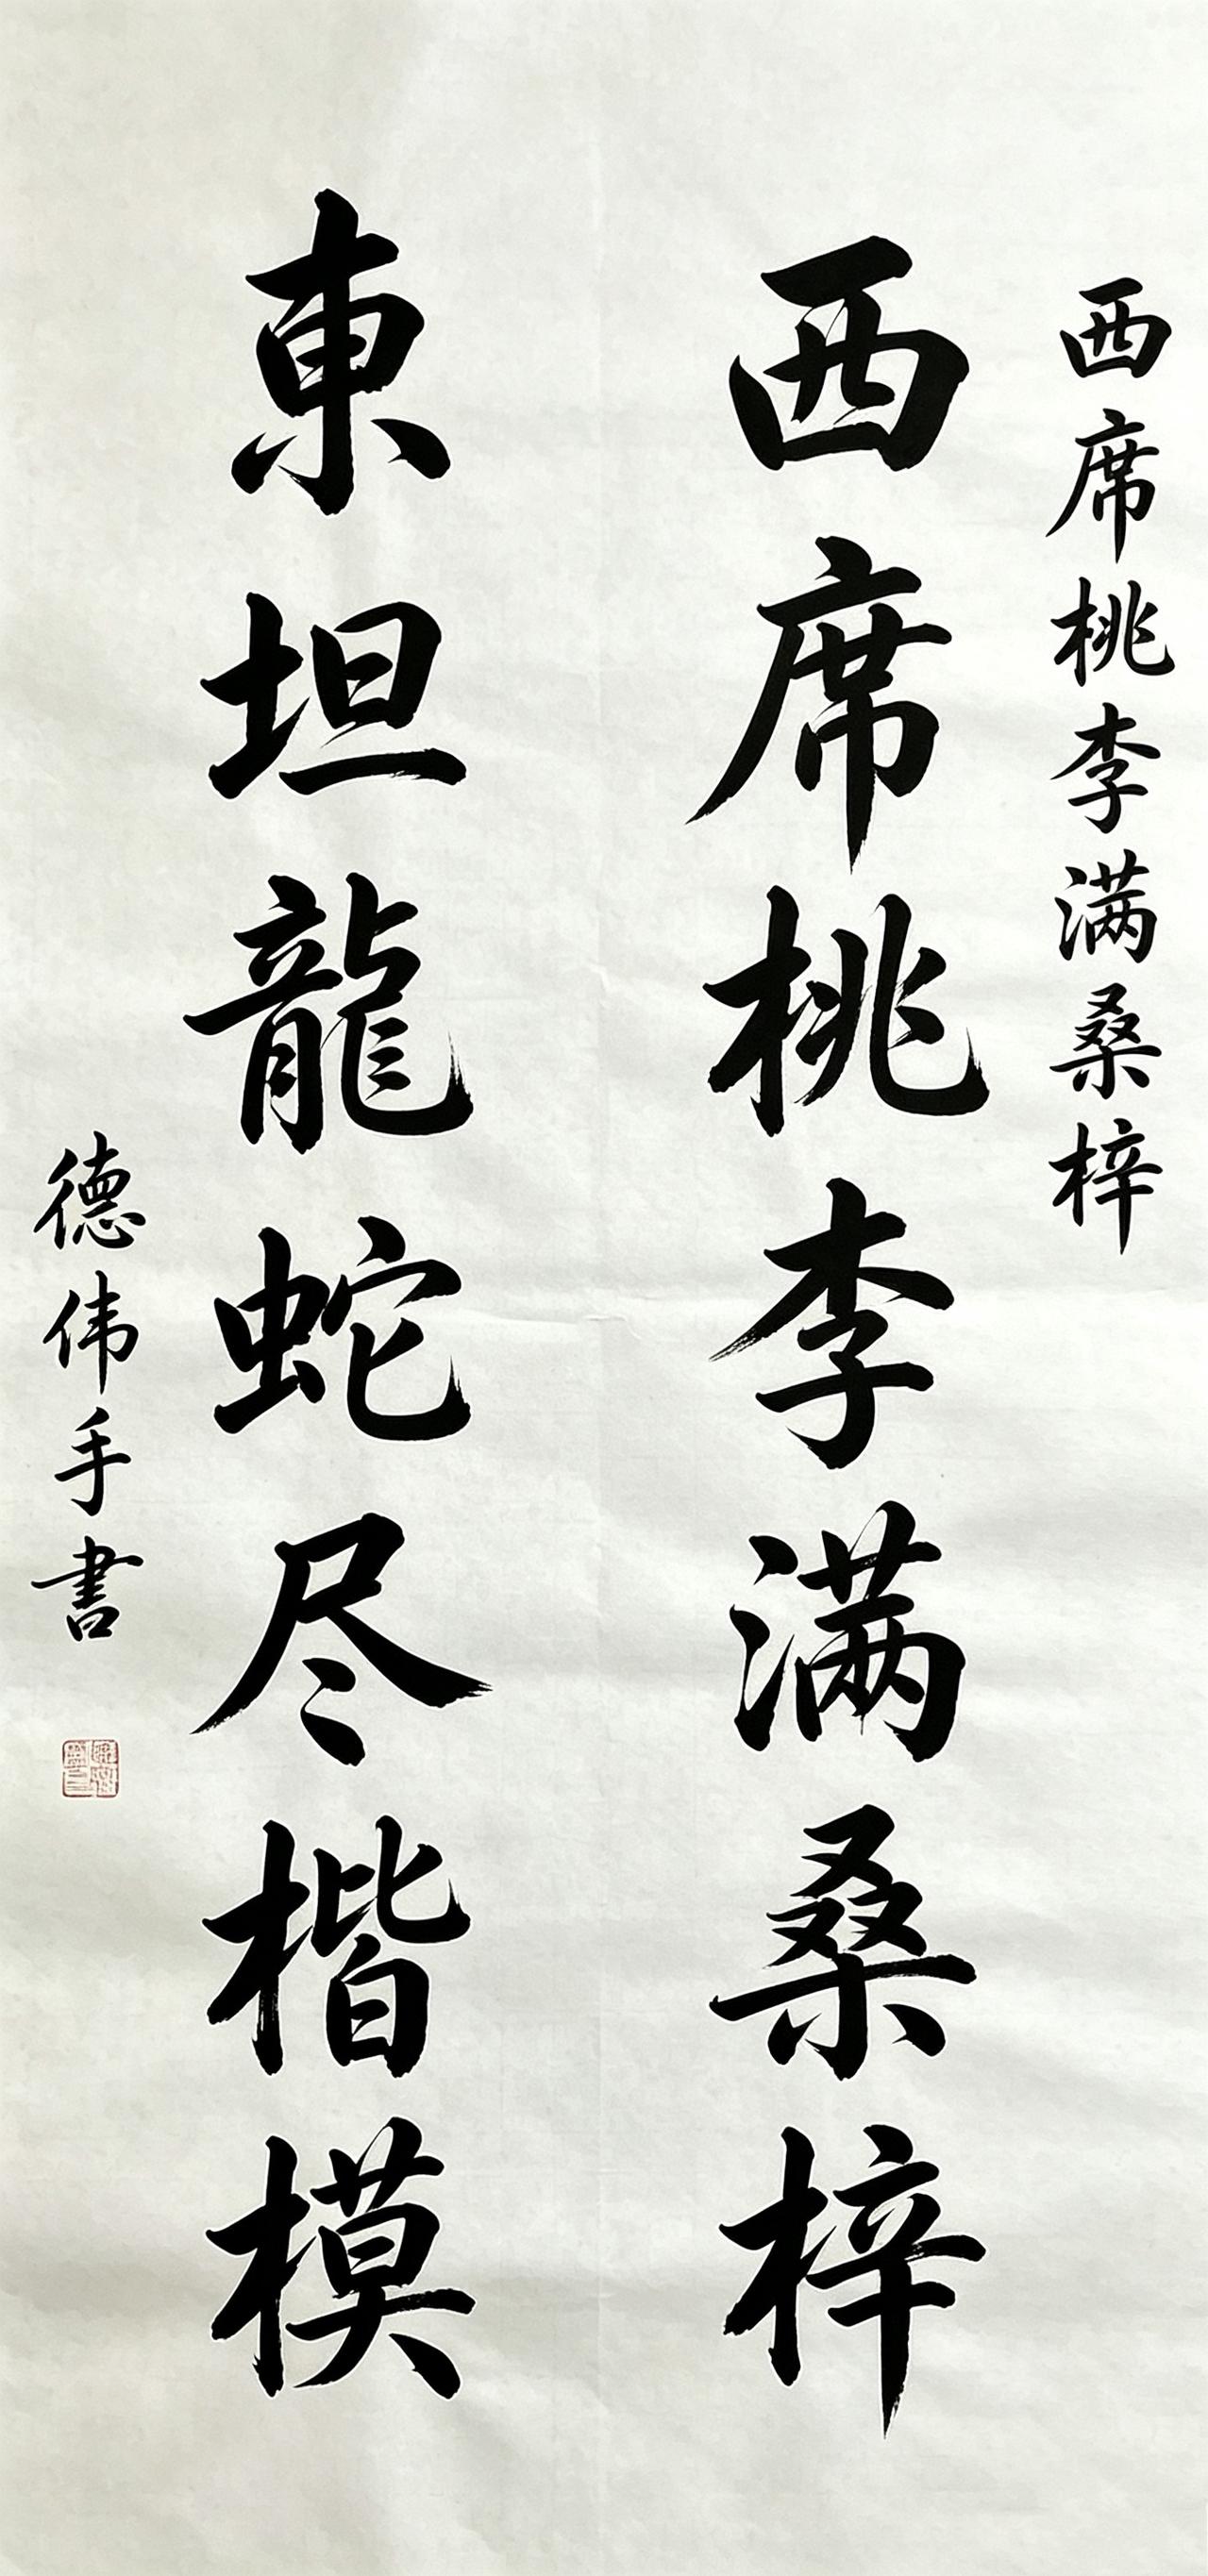 西席桃李满桑梓
西席桃李满桑梓
東坦龍蛇尽楷模
德伟手書